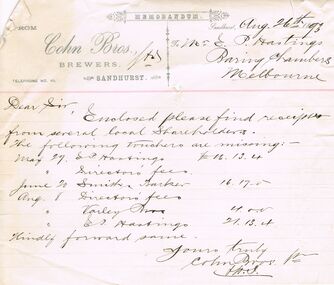 MEMORANDUM.
FROM
Cohn Bros.
BREWERS.
TELEPHONE NO.
SANDHURST.
Sandhurst, Aug. 26th 1893
To Mr E. P. Hastings
Baring Chambers
Melbourne
Dear Sir,
Enclosed please find receipts
from several local Shareholders.
The following Vouchers are missing:-
May 27. E P Hastings £16.13.4
" Directors fees
June 20 Smith Barker 16.17.0
Aug. 8 Directors fees
" Varley Bros
" E P Hastings 21.13.4
Kindly forward same.
Yours truly
Cohn Bros